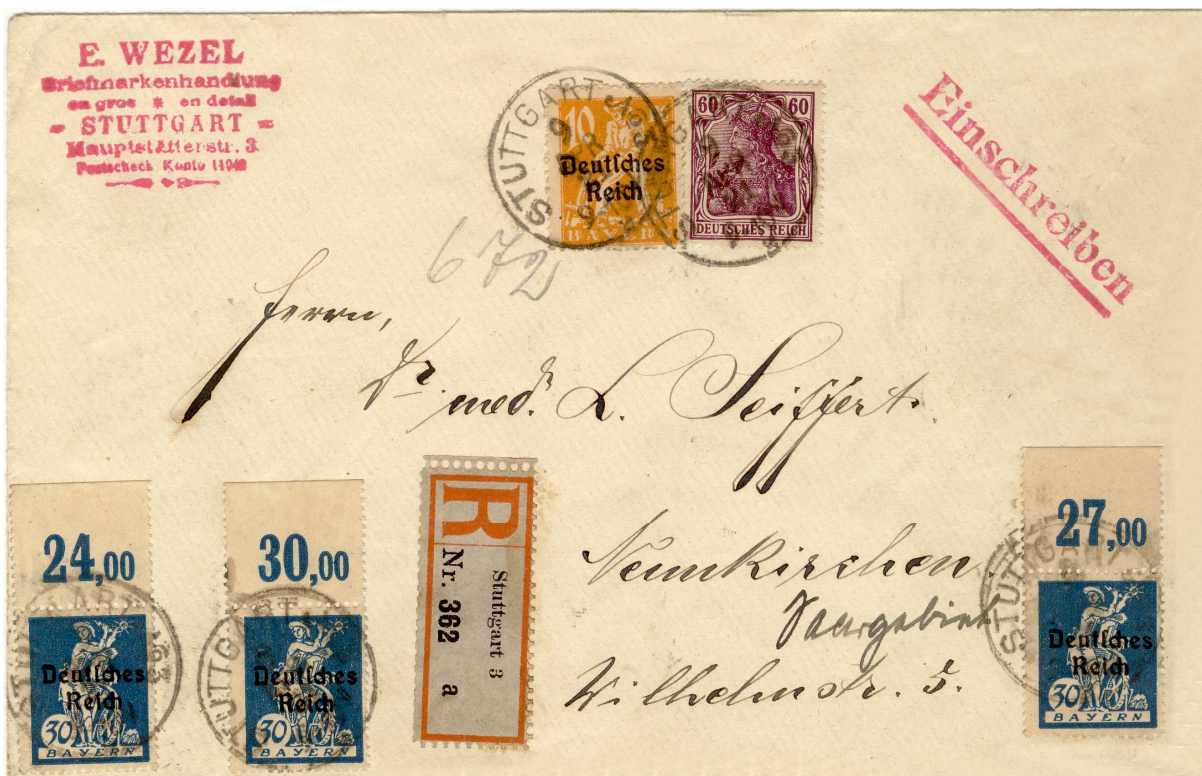 E. WEZEL
Briefmarkenhandlung
en gros * en detail
STUTTGART
Hauptstätterstr. 3.
Postscheck Konto 11048
Einschreiben
STUTTGART No3
10
Deutsches
Reich
BAYERN
60 60
DEUTSCHES REICH
679
Herrn,
Dr. med. L. Seiffert.
Neunkirchen
Saargebiet
Wilhelmstr. 5.
24,00
Deutsches
Reich
30
BAYERN
30,00
STUTTGART
Deutsches
Reich
30
BAYERN
R
Stuttgart 3
Nr. 362 a
27,00
STUTTGART
Deutsches
Reich
30
BAYERN